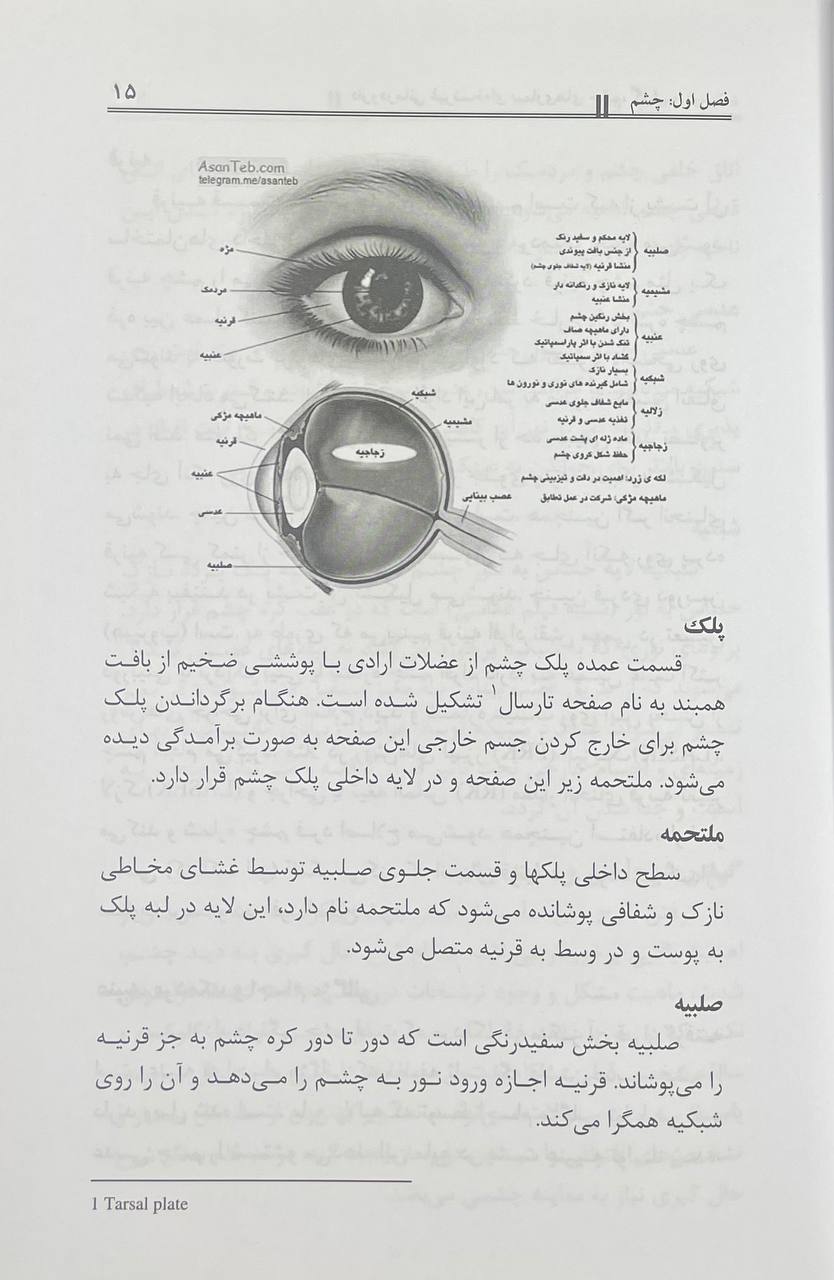 فصل اول: چشم
۱۵
AsanTeb.com
telegram.me/asanteb
مژه
مردمک
قرنیه
عنبیه
صلبیه
لایه محکم و سفید رنگ
از جنس بافت پیوندی
منشا قرنیه (لایه شفاف جلوی چشم)
مشیمیه
لایه نازک و رنگدانه دار
منشا عنبیه
عنبیه
بخش رنگین چشم
دارای ماهیچه صاف
تنگ شدن با اثر پاراسمپاتیک
گشاد با اثر سمپاتیک
شبکیه
بسیار نازک
شامل گیرنده های نوری و نورون ها
زلالیه
مایع شفاف جلوی عدسی
تغذیه عدسی و قرنیه
زجاجیه
ماده ژله ای پشت عدسی
حفظ شکل کروی چشم
لکه ی زرد: اهمیت در دقت و تیزبینی چشم
ماهیچه مژکی: شرکت در عمل تطابق
شبکیه
مشیمیه
زجاجیه
عصب بینایی
ماهیچه مژکی
قرنیه
عنبیه
عدسی
صلبیه
پلک
قسمت عمده پلک چشم از عضلات ارادی با پوششی ضخیم از بافت
همبند به نام صفحه تارسال۱ تشکیل شده است. هنگام برگرداندن پلک
چشم برای خارج کردن جسم خارجی این صفحه به صورت برآمدگی دیده
می‌شود. ملتحمه زیر این صفحه و در لایه داخلی پلک چشم قرار دارد.
ملتحمه
سطح داخلی پلکها و قسمت جلوی صلبیه توسط غشای مخاطی
نازک و شفافی پوشانده می‌شود که ملتحمه نام دارد، این لایه در لبه پلک
به پوست و در وسط به قرنیه متصل می‌شود.
صلبیه
صلبیه بخش سفیدرنگی است که دور تا دور کره چشم به جز قرنیه
را می‌پوشاند. قرنیه اجازه ورود نور به چشم را می‌دهد و آن را روی
شبکیه همگرا می‌کند.
1 Tarsal plate